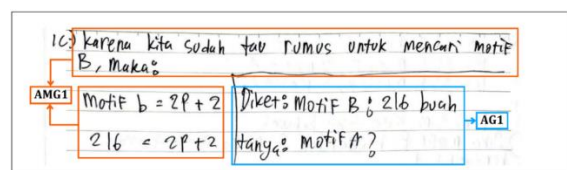 1C.) Karena kita sudah tau rumus untuk mencari motif
B, maka:
AMG1
motif b = 2P + 2
216 = 2P + 2
Diket: Motif B : 216 buah
tanya: motif A?
AG1